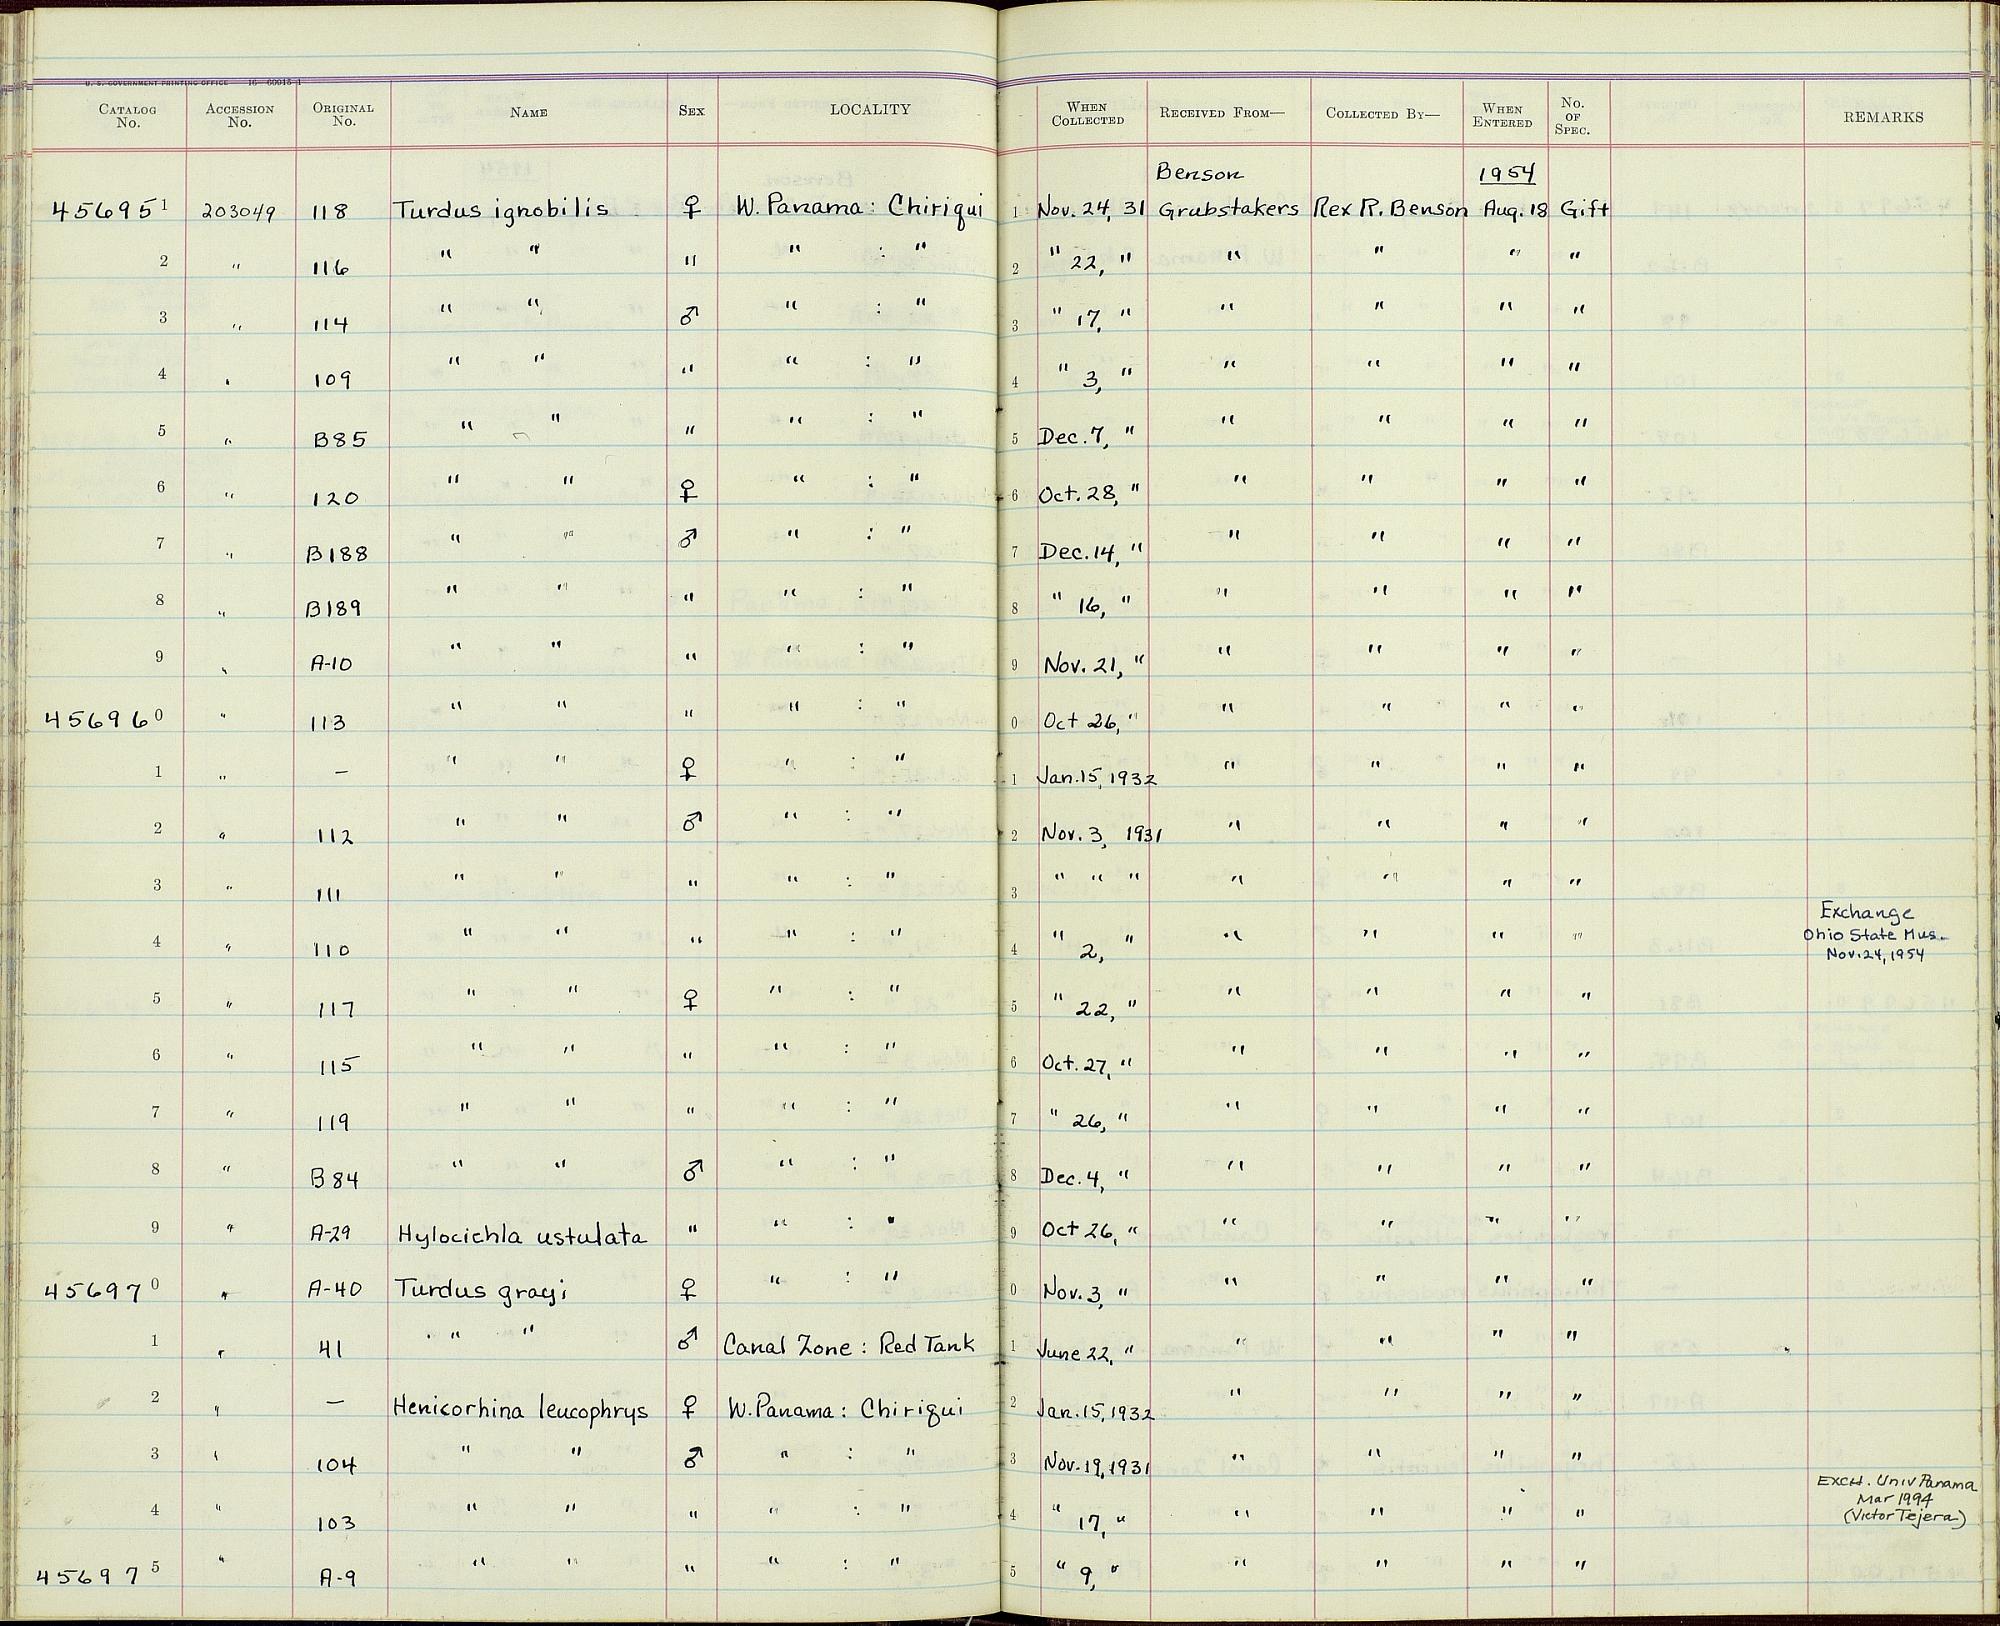 U. S. GOVERNMENT PRINTING OFFICE 16—60015-1
CATALOG No. ACCESSION No. ORIGINAL No. NAME SEX LOCALITY WHEN COLLECTED RECEIVED FROM— COLLECTED BY— WHEN ENTERED No. OF SPEC. REMARKS
Benson 1954
456951 203049 118 Turdus ignobilis ♀ W. Panama: Chiriqui 1 Nov. 24, 31 Grubstakers Rex R. Benson Aug. 18 Gift
2 " 116 " " " " : " 2 " 22, " " " " "
3 " 114 " " ♂ " : " 3 " 17, " " " " "
4 " 109 " " " " : " 4 " 3, " " " " "
5 " B85 " " " " : " 5 Dec. 7, " " " " "
6 " 120 " " ♀ " : " 6 Oct. 28, " " " " "
7 " B188 " " ♂ " : " 7 Dec. 14, " " " " "
8 " B189 " " " " : " 8 " 16, " " " " "
9 " A-10 " " " " : " 9 Nov. 21, " " " " "
456960 " 113 " " " " : " 0 Oct 26, " " " " "
1 " — " " ♀ " : " 1 Jan. 15, 1932 " " " "
2 " 112 " " ♂ " : " 2 Nov. 3, 1931 " " " "
3 " 111 " " " " : " 3 " " " " " " "
4 " 110 " " " " : " 4 " 2, " " " " " Exchange
Ohio State Mus.
Nov. 24, 1954
5 " 117 " " ♀ " : " 5 " 22, " " " " "
6 " 115 " " " " : " 6 Oct. 27, " " " " "
7 " 119 " " " " : " 7 " 26, " " " " "
8 " B84 " " ♂ " : " 8 Dec. 4, " " " " "
9 " A-29 Hylocichla ustulata " " : " 9 Oct 26, " " " " "
456970 " A-40 Turdus grayi ♀ " : " 0 Nov. 3, " " " " "
1 " 41 " " ♂ Canal Zone: Red Tank 1 June 22, " " " " "
2 " — Henicorhina leucophrys ♀ W. Panama: Chiriqui 2 Jan. 15, 1932 " " " "
3 " 104 " " ♂ " : " 3 Nov. 19, 1931 " " " "
4 " 103 " " " " : " 4 " 17, " " " " " EXCH. Univ Panama
Mar 1994
(Victor Tejera)
456975 " A-9 " " " " : " 5 " 9, " " " " "